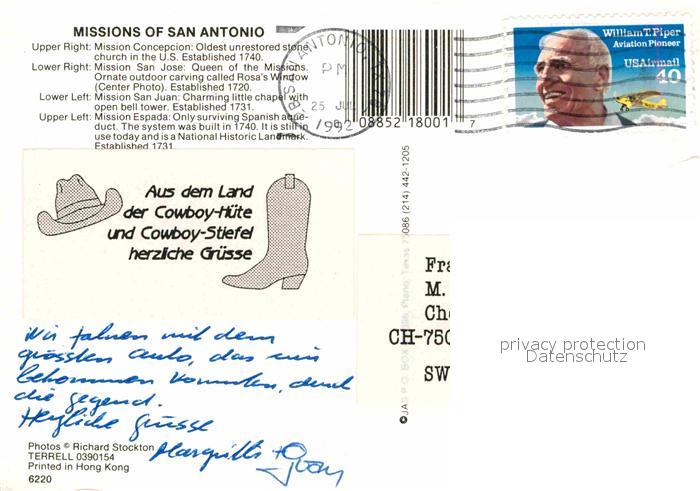 MISSIONS OF SAN ANTONIO
Upper Right: Mission Concepcion: Oldest unrestored stone
church in the U.S. Established 1740.
Lower Right: Mission San Jose: Queen of the Missions.
Ornate outdoor carving called Rosa's Window
(Center Photo). Established 1720.
Lower Left: Mission San Juan: Charming little chapel with
open bell tower. Established 1731.
Upper Left: Mission Espada: Only surviving Spanish aque-
duct. The system was built in 1740. It is still in
use today and is a National Historic Landmark.
Established 1731.
SAN ANTONIO,
PM
25 JUL
1992
08852 18001 7
William T. Piper
Aviation Pioneer
US Airmail
40
Aus dem Land
der Cowboy-Hüte
und Cowboy-Stiefel
herzliche Grüsse
Wir fahren mit dem
grössten Auto, das wir
bekommen konnten, durch
die Gegend.
Herzliche Grüsse
Photos © Richard Stockton
TERRELL 0390154
Printed in Hong Kong
6220
©JAS P.O. BOX Plano, Texas 75086 (214) 442-1205
Fra
M.
Ch
CH-750
SW
privacy protection
Datenschutz